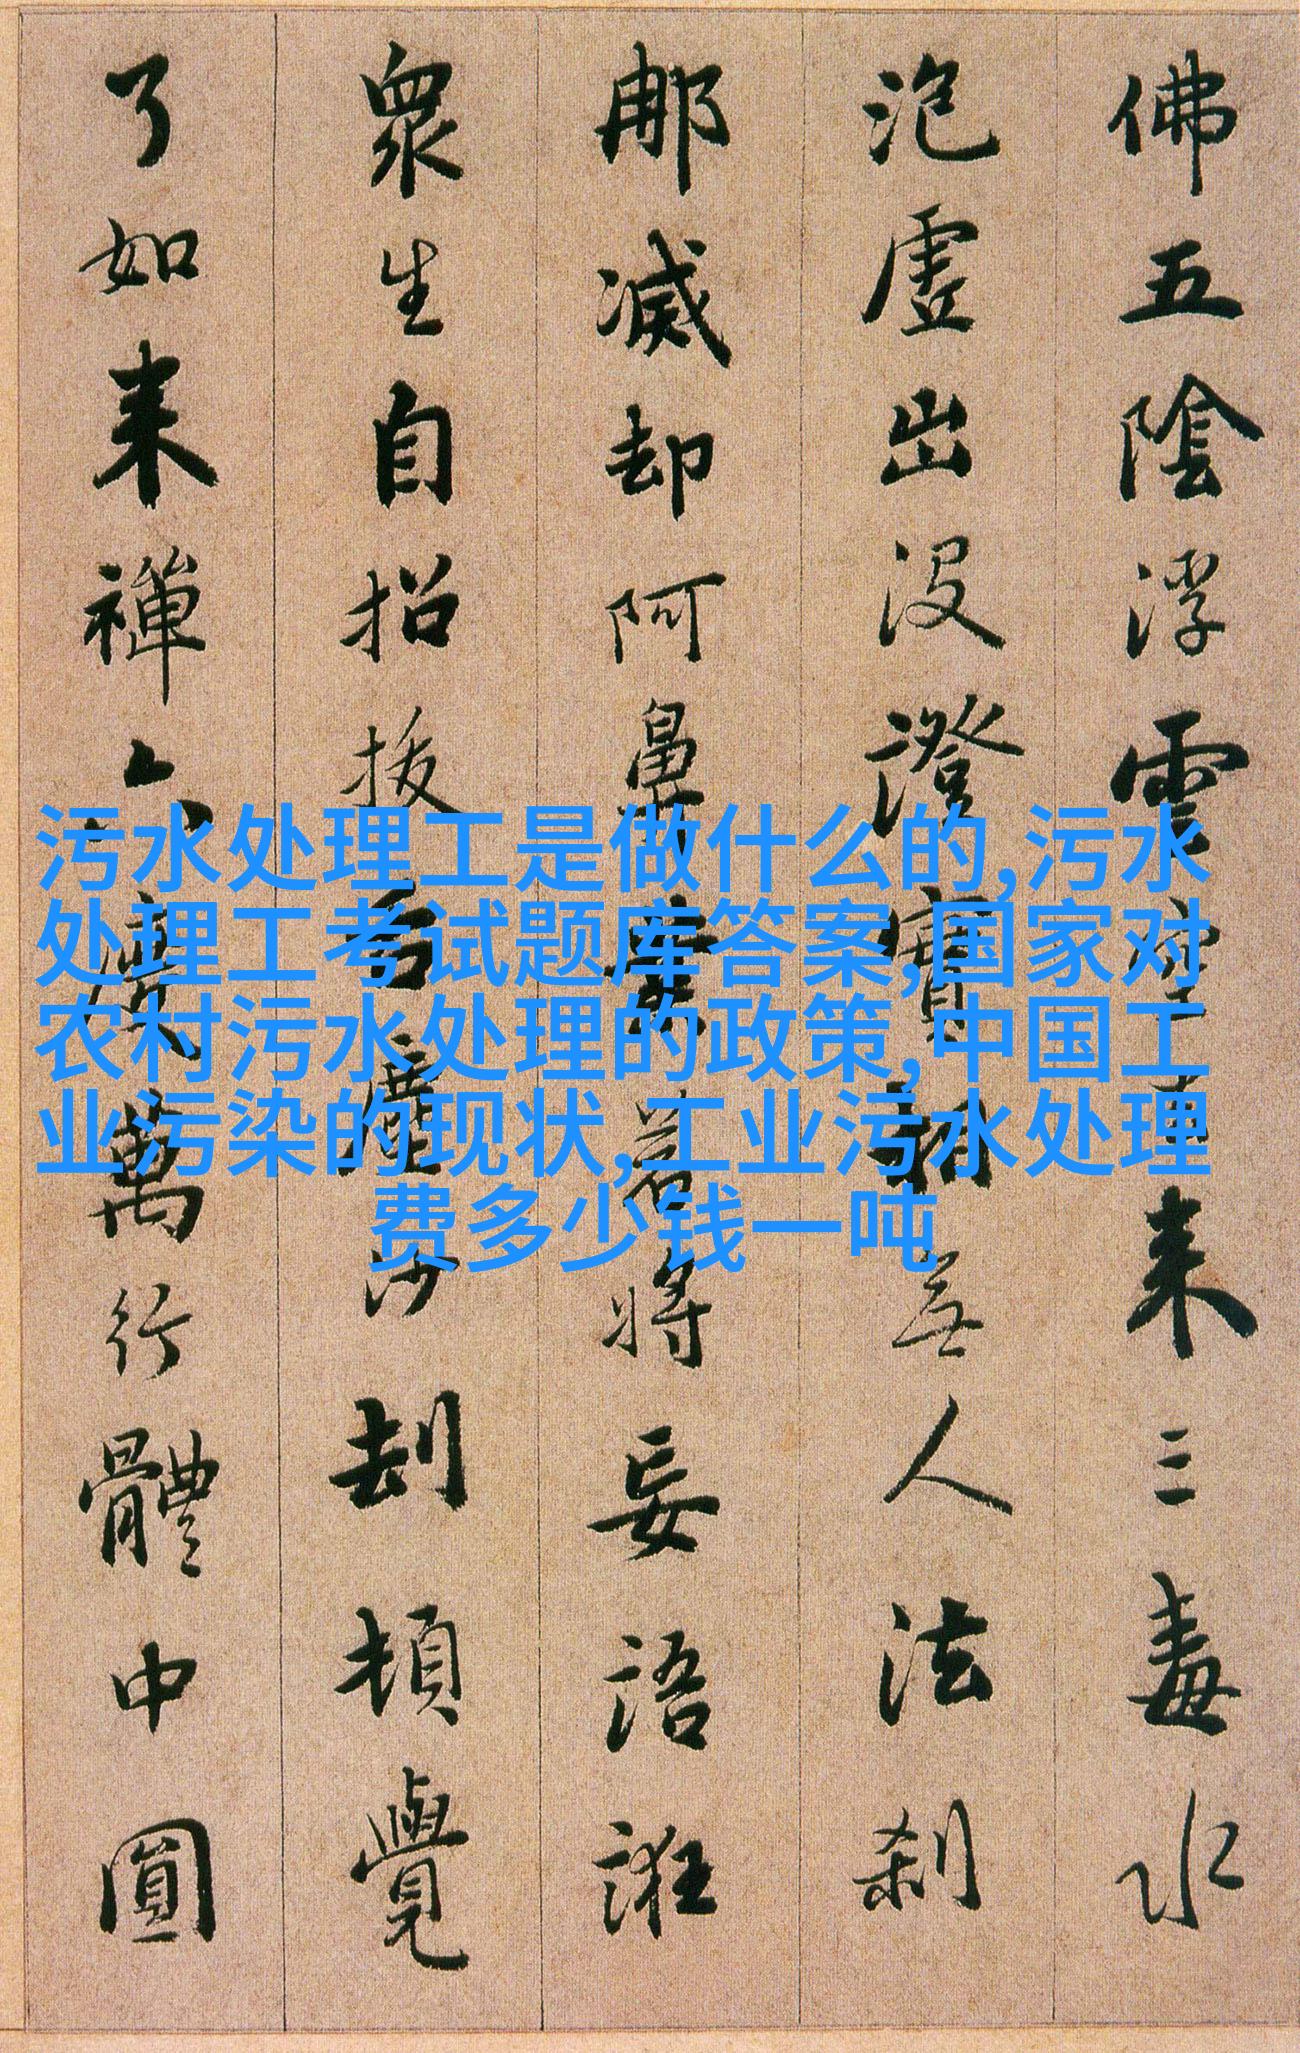 佛五陰浮雲空来三毒水
泡虚出没證實相無人法刹
那滅却阿鼻業若將妄語誑
衆生自招拔舌塵沙刼頓覺
了如来禪六度萬行體中圓
污水处理工是做什么的,污水
处理工考试题库答案,国家对
农村污水处理的政策,中国工
业污染的现状,工业污水处理
费多少钱一吨